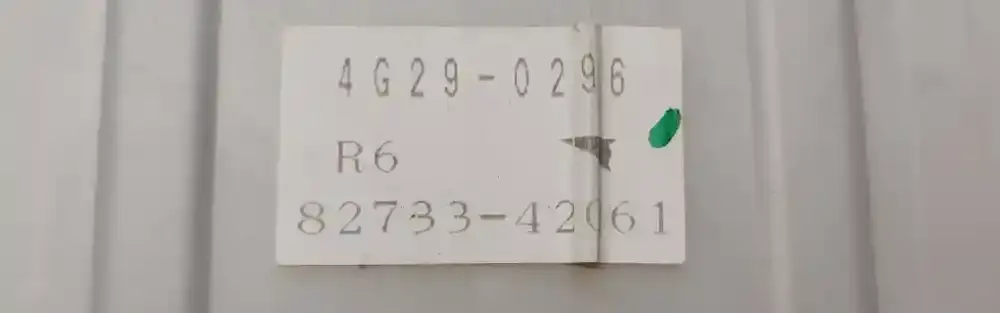 4G29-0296
R6
82733-42061